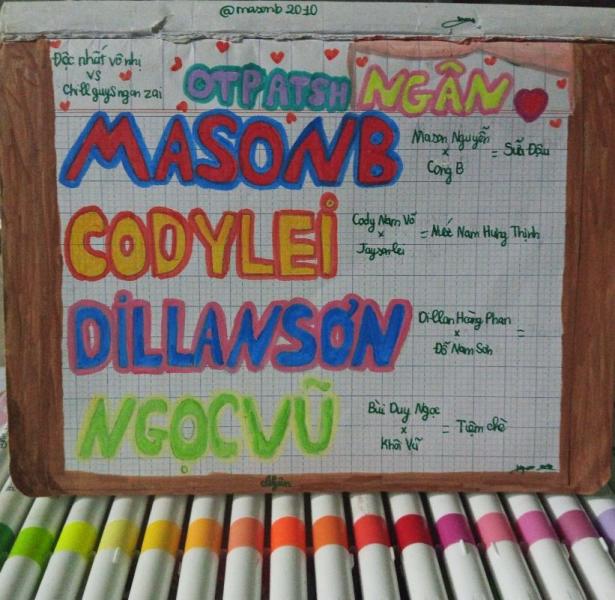 @masonb2010
Độc nhất vô nhị
VS
Chillguysngan zai
OTPATSH NGÂN
MASONB
Mason Nguyễn
x
Cong B
= Sữa Đậu
CODYLEI
Cody Nam Võ
x
Jaysonlei
= Nước Nam Hưng Thịnh
DILLANSƠN
Dillan Hoàng Phan
x
Đỗ Nam Sơn
=
NGỌCVŨ
Bùi Duy Ngọc
x
Khôi Vũ
= Tiệm chè
Ngân